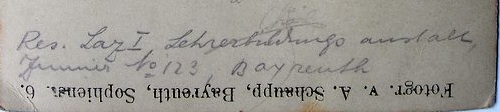 Res. Laz I, Lehrerbildungs anstalt,
Zimmer No 123, Bayreuth
Fotogr. v. A. Schaupp, Bayreuth, Sophienst. 6.